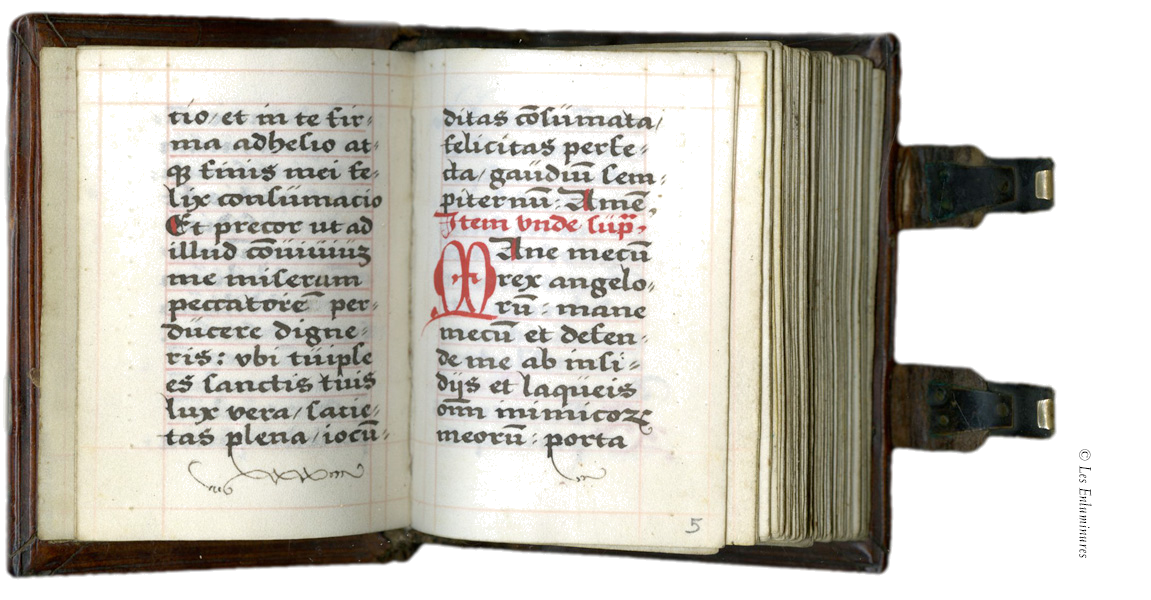 tio/et in te fir⸗
ma adhesio at⸗
qꝫ finis mei fe⸗
lix consūmacio
Et precor ut ad
illud cōuiuiuꝫ
me miserum
peccatorē per⸗
ducere digne⸗
ris: vbi tu ipse
es sanctis tuis
lux vera/satie⸗
tas plena/iocū⸗
ditas cōsūmata/
felicitas perfe⸗
cta/gaudiū sem⸗
piternū: Amē;
Item vnde sup̄.
MAne mecū
rex angelo⸗
rū: mane
mecū et defen⸗
de me ab insi⸗
dijs et laqueis
om̄ inimicoꝝ
meorū: porta
5
© Les Enluminures